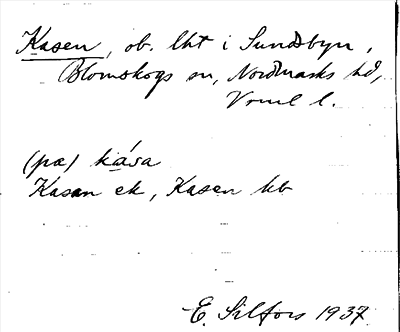 Kasen, ob. lht i Sundsbyn,
Blomskogs sn, Nordmarks hd,
Vrml l.
(pæ) kása
Kasan ek, Kasen kb
E. Silfors 1937